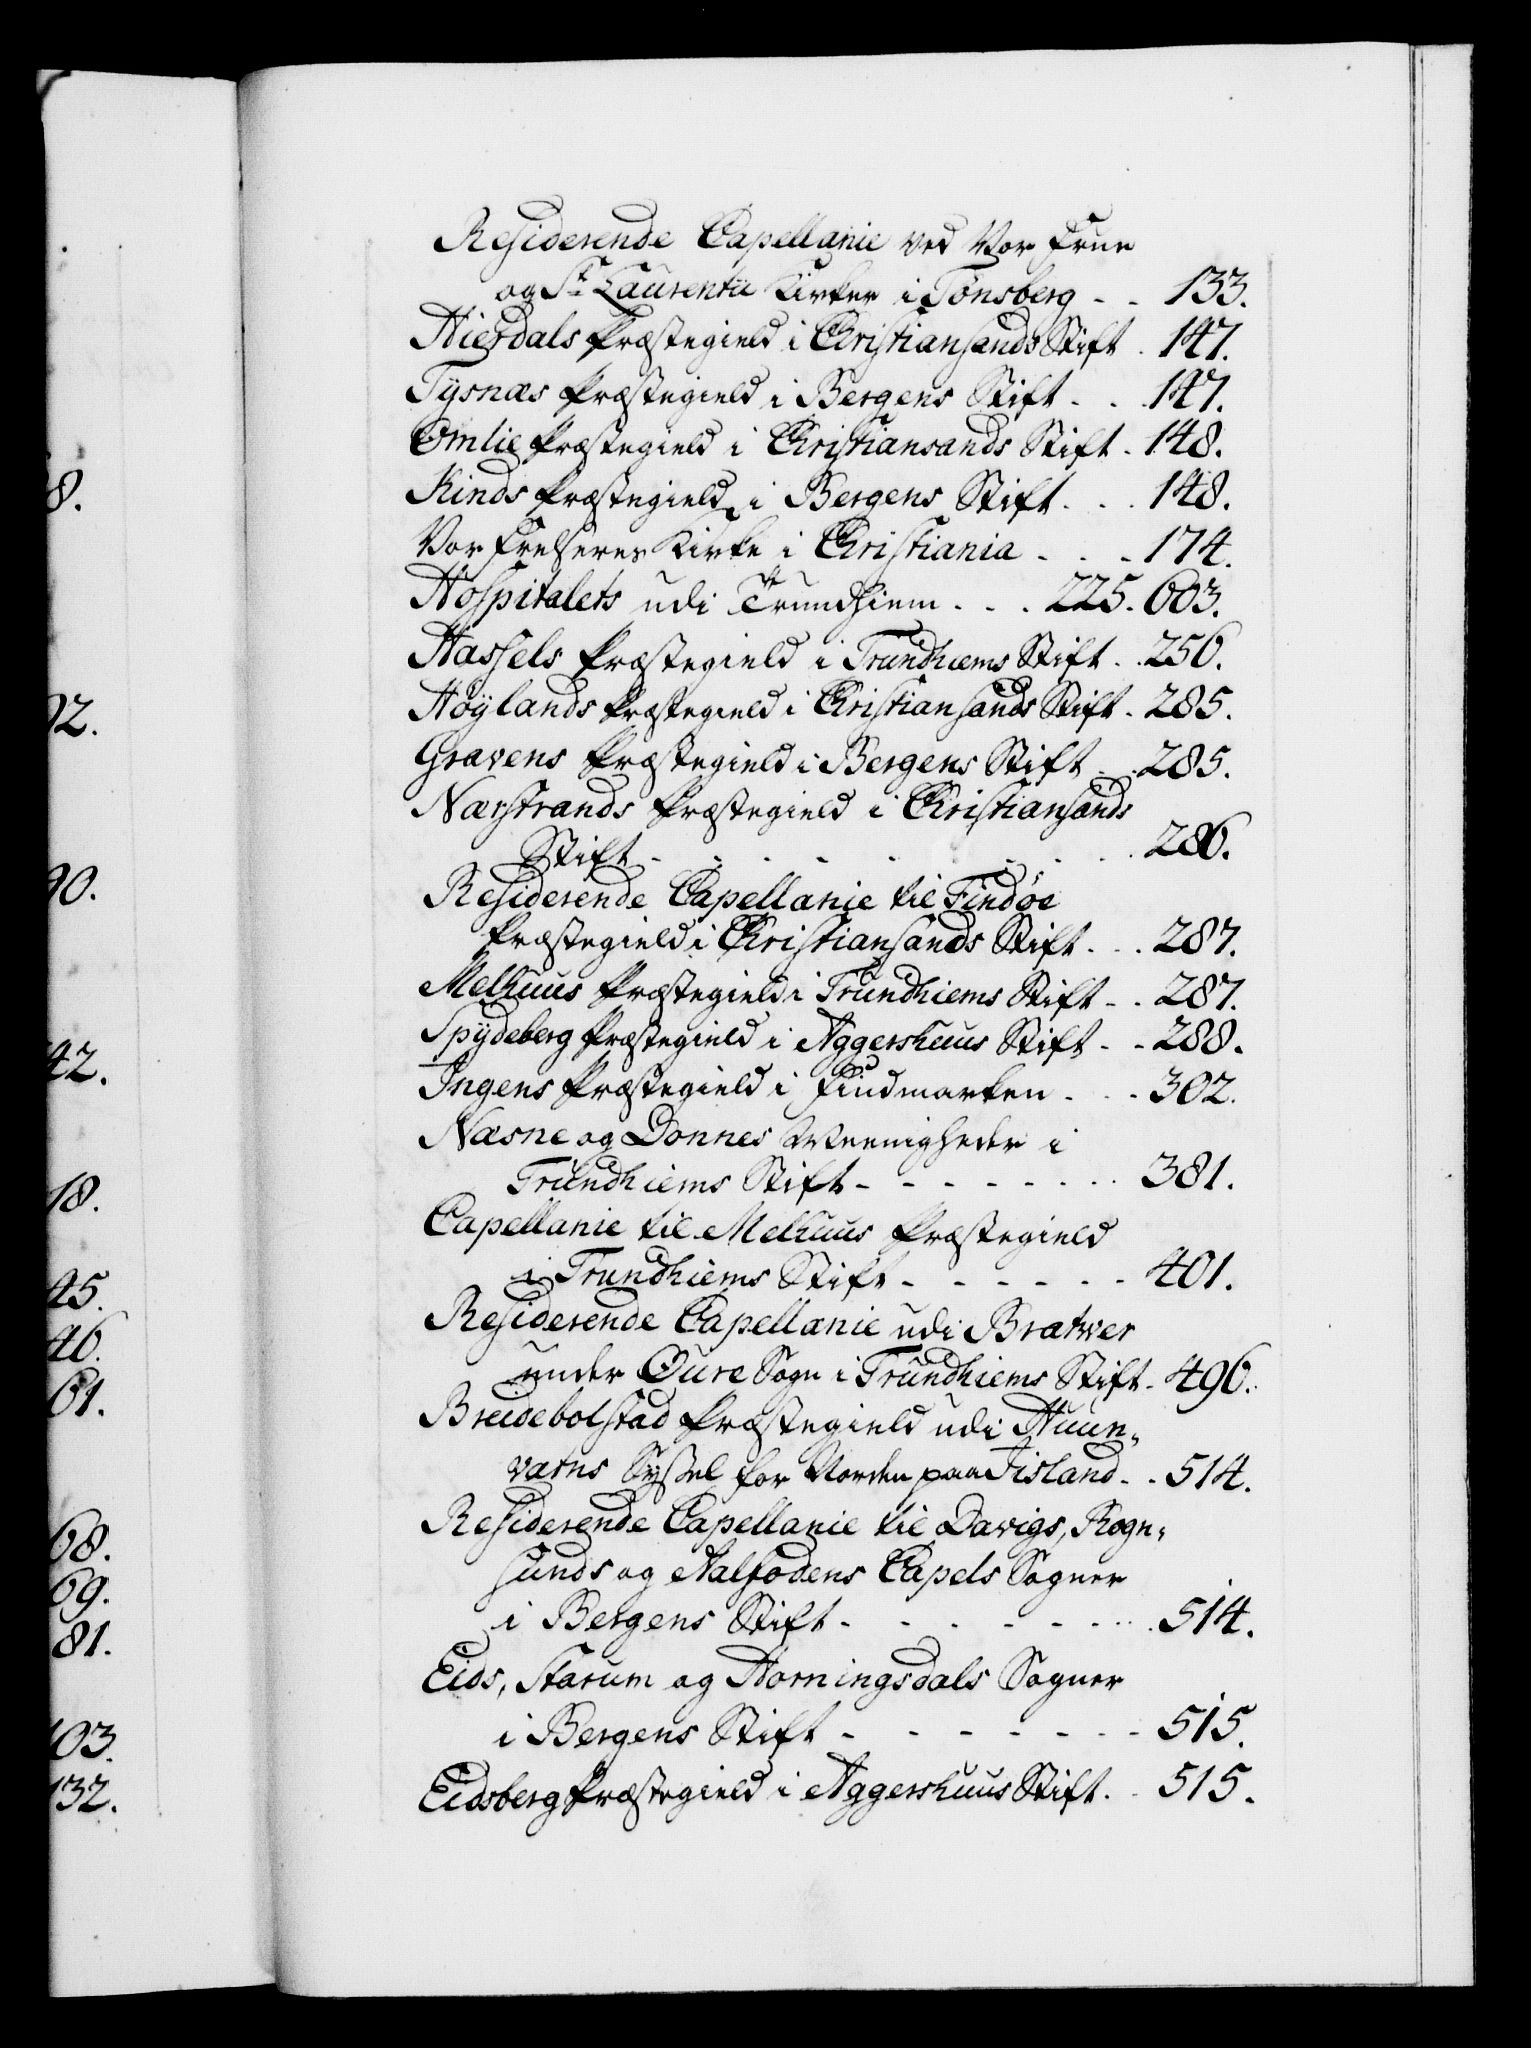 Residerende Capellanie ved Vor Frue
og St Laurentii Kirker i Tønsberg - - 133.
Hierdals Præstegield i Christiansands Stift . 147.
Tysnæs Præstegield i Bergens Stift . . . 147.
Omlie Præstegield i Christiansands Stift . 148.
Kinds Præstegield i Bergens Stift . . . 148.
Vor Frelseres Kirke i Christiania . . . 174.
Hospitalets udi Trundhiem . . . 225. 603.
Hassels Præstegield i Trundhiems Stift . . 256.
Høylands Præstegield i Christiansands Stift . 285.
Gravens Præstegield i Bergens Stift . . 285.
Nærstrands Præstegield i Christiansands
Stift - - - - - - - - 286.
Residerende Capellanie til Findøe
Præstegield i Christiansands Stift . . . 287.
Melhuus Præstegield i Trundhiems Stift - . 287.
Spydeberg Præstegield i Aggershuus Stift - - 288.
Ingens Præstegield i Findmarken . . . 302.
Næsne og Dønnes Meenigheder i
Trundhiems Stift - - - - - - - 381.
Capellanie til Melhuus Præstegield
i Trundhiems Stift - - - - - - 401.
Residerende Capellanie udi Brætver
under Oure Sogn i Trundhiems Stift - 496.
Breidebolstad Præstegield udi Huun-
vatns Syssel for Norden paa Iisland - . 514.
Residerende Capellanie til Davigs, Rogn-
sunds og Aalfodens Capels Sogner
i Bergens Stift - - - - - - - 514.
Eids, Starum og Horningsdals Sogner
i Bergens Stift - - - - - - - 515.
Eidsberg Præstegield i Aggershuus Stift . . 515.
8.
92.
90.
42.
18.
45.
46.
61.
68.
69.
81.
103.
132.